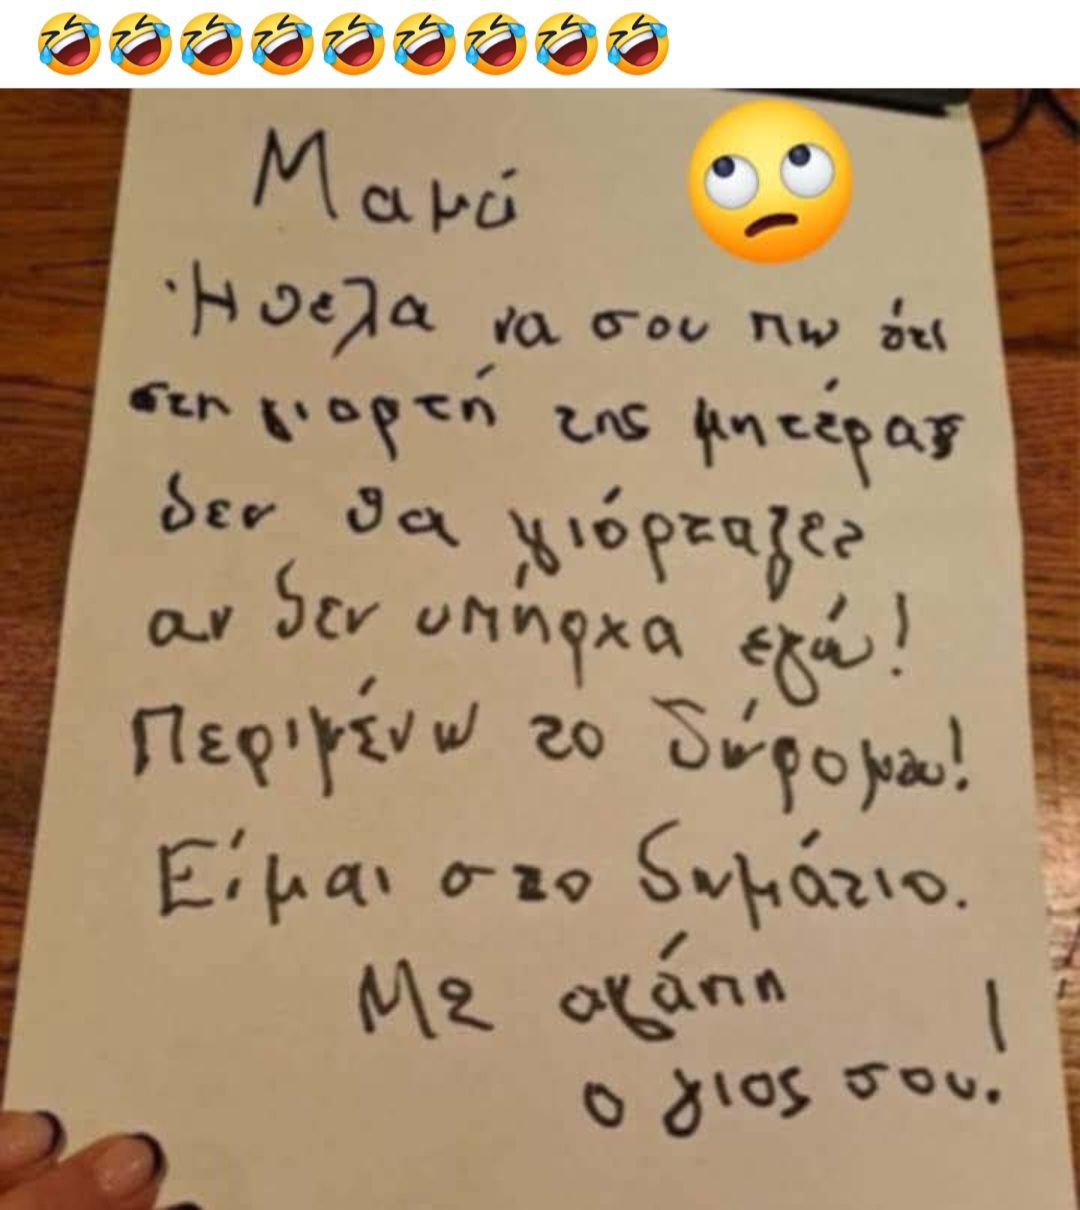 Μαμά
Ήθελα να σου πω ότι
στη γιορτή της μητέρας
δεν θα γιόρταζες
αν δεν υπήρχα εγώ!
Περιμένω το δώρο μου!
Είμαι στο δωμάτιο.
Με αγάπη
ο γιος σου!